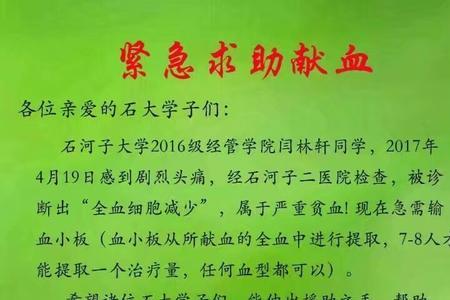 紧急求助献血
各位亲爱的石大学子们：
石河子大学2016级经管学院闫林轩同学，2017年
4月19日感到剧烈头痛，经石河子二医院检查，被诊
断出“全血细胞减少”，属于严重贫血！现在急需输
血小板（血小板从所献血的全血中进行提取，7-8人才
能提取一个治疗量，任何血型都可以）。
希望诸位石大学子们，能伸出援助之手，帮助